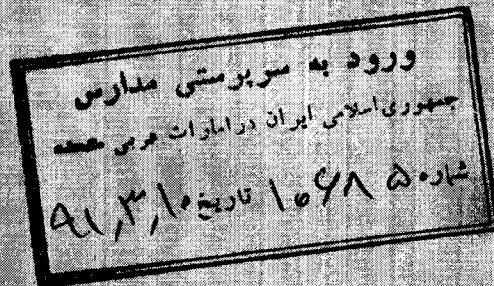 ورود به سرپرستی مدارس
جمهوری اسلامی ایران در امارات عربی متحده
شماره ۱۰۶۸۵ تاریخ ۹۱٫۳٫۱۰